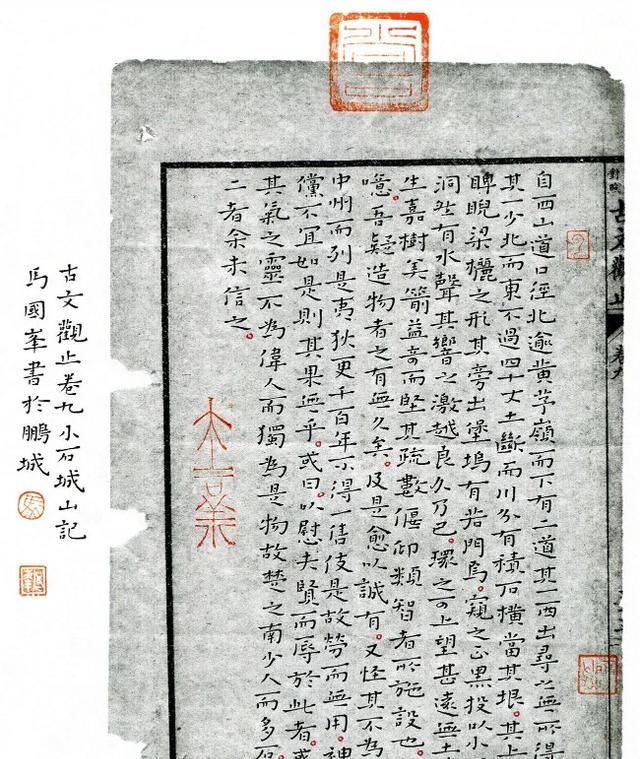 古文觀止 卷九
自西山道口徑北逾黃茅嶺而下有二道其一西出尋之無所得
其一少北而東不過四十丈土斷而川分有積石橫當其垠。其上
睥睨梁欐之形其旁出堡塢有若門焉。窺之正黑投以小
洞然有水聲其響之激越良久乃已。環之可上望甚遠無土
生嘉樹美箭益奇而堅其疏數偃仰類智者所施設也。
噫。吾疑造物者之有無久矣。及是愈以誠有。又怪其不為
中州而列是夷狄更千百年不得一售伎是故勞而無用。神
儻不宜如是則其果無乎。或曰。以慰夫賢而辱於此者。或
其氣之靈不為偉人而獨為是物故楚之南少人而多石
二者余未信之。
古文觀止卷九小石城山記
馬國峯書於鵬城